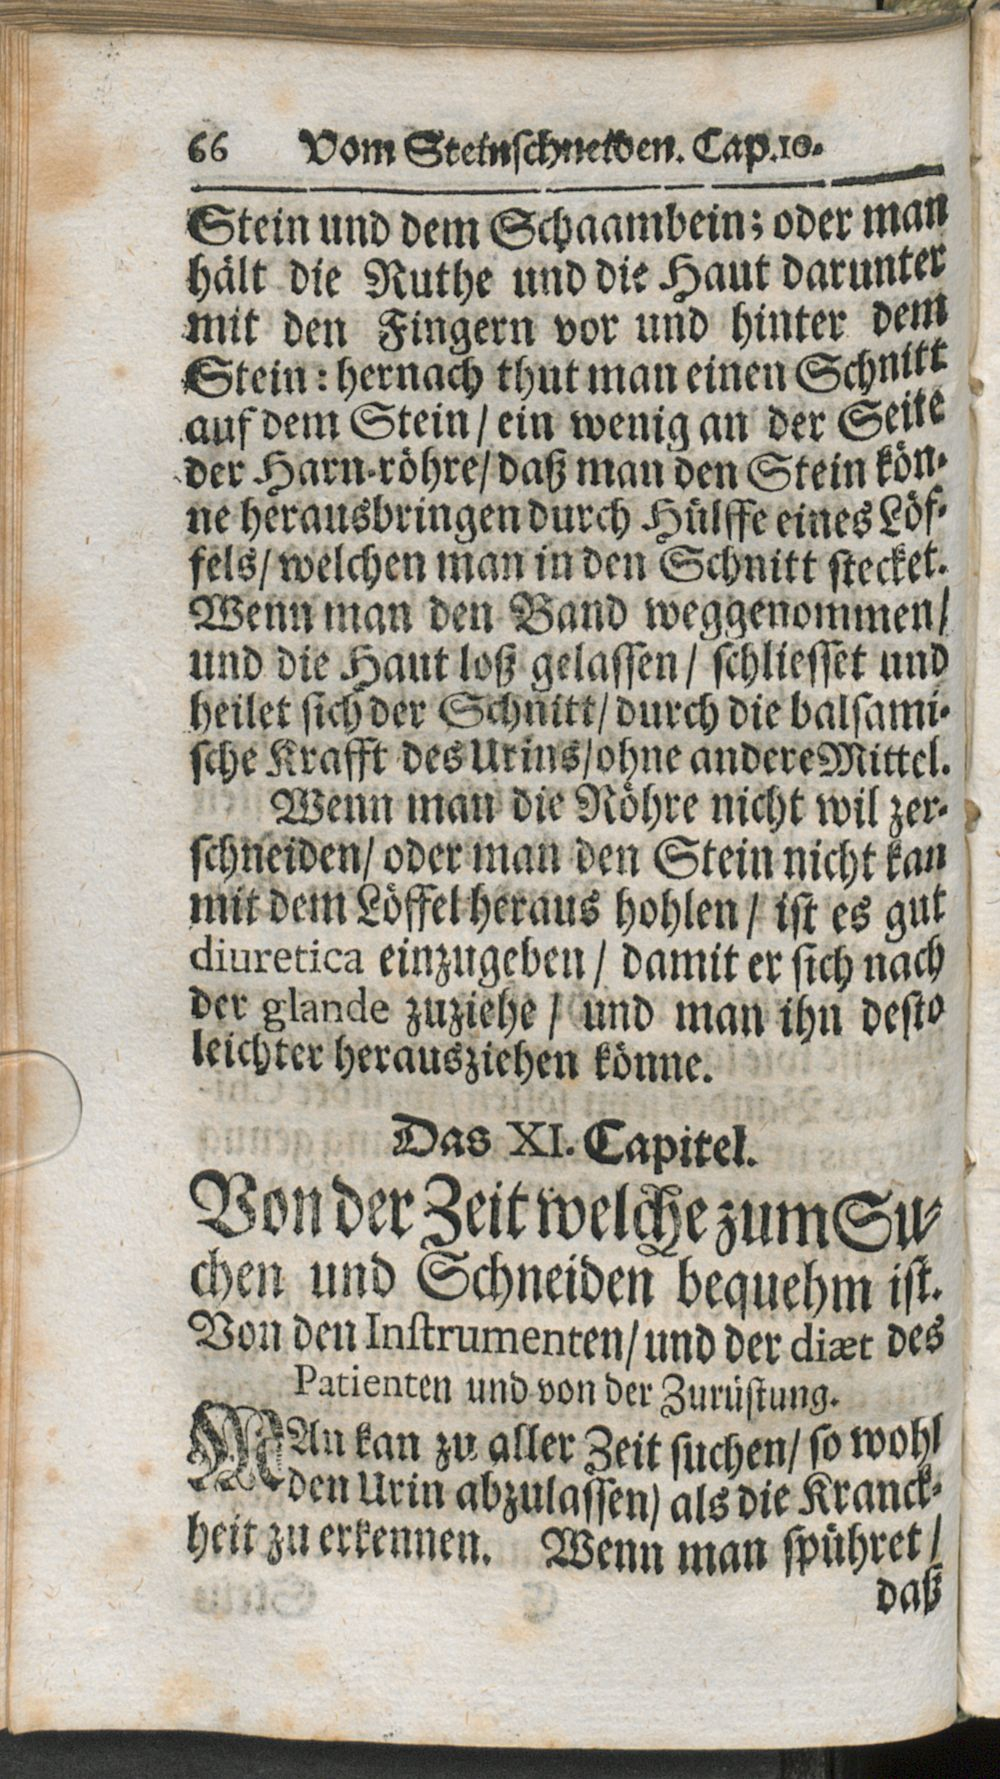 66 Vom Steinschneiden. Cap.10.
Stein und dem Schaambein; oder man
hält die Ruthe und die Haut darunter
mit den Fingern vor und hinter dem
Stein: hernach thut man einen Schnitt
auf dem Stein/ ein wenig an der Seite
der Harn-röhre/ daß man den Stein kön-
ne herausbringen durch Hülffe eines Löf-
fels/ welchen man in den Schnitt stecket.
Wenn man den Band weggenommen/
und die Haut loß gelassen/ schliesset und
heilet sich der Schnitt/ durch die balsami-
sche Krafft des Urins/ ohne andere Mittel.
Wenn man die Röhre nicht wil zer-
schneiden/ oder man den Stein nicht kan
mit dem Löffel heraus hohlen/ ist es gut
diuretica einzugeben/ damit er sich nach
der glande zuziehe/ und man ihn desto
leichter herausziehen könne.
Das XI. Capitel.
Von der Zeit welche zum Su-
chen und Schneiden bequehm ist.
Von den Instrumenten/ und der diæt des
Patienten und von der Zurüstung.
MAn kan zu aller Zeit suchen/ so wohl
den Urin abzulassen/ als die Kranck-
heit zu erkennen. Wenn man spühret/
daß